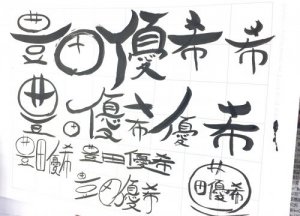 豊田優希希
豊田優希優希
豊田優希豊田優希
豊田優希
豊田優希